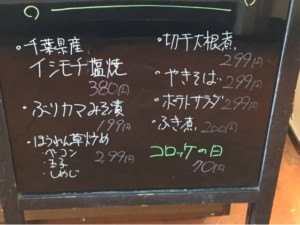 ・千葉県産
イシモチ塩焼
380円
・ぶりカマみそ漬
199円
・ほうれん草炒め
ベーコン
玉子
しめじ
299円
・切干大根煮
299円
・やきそば
299円
・ポテトサラダ
299円
・ふき煮 200円
コロッケの日
70円